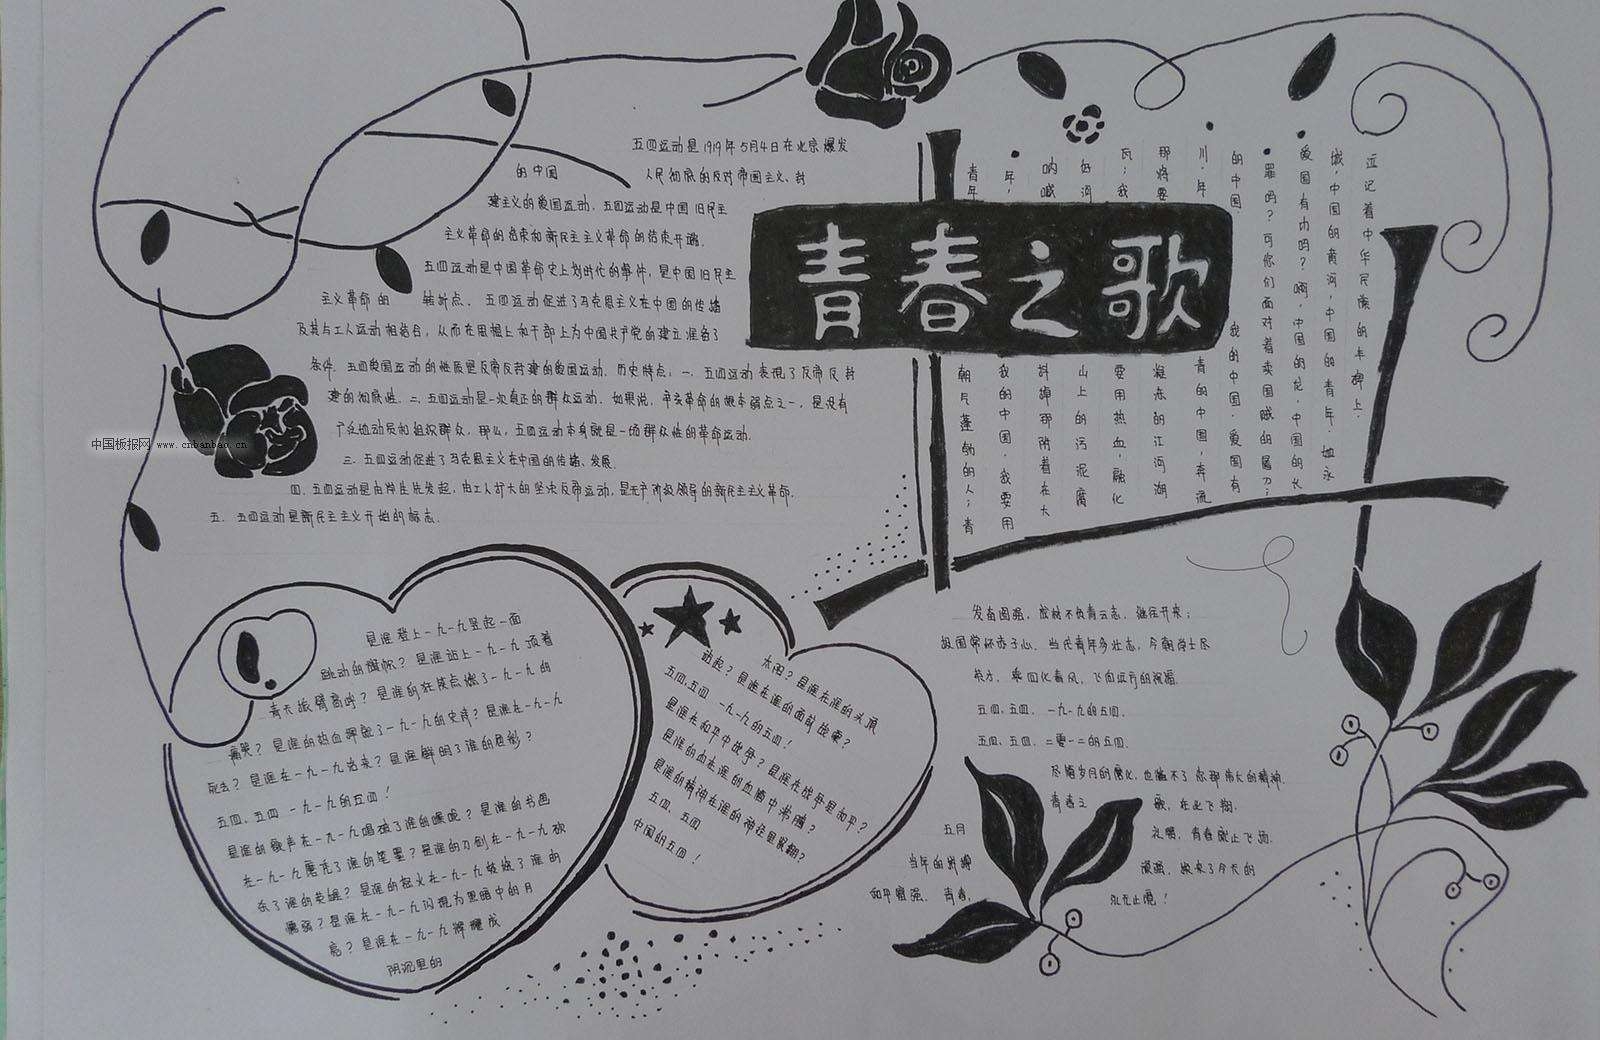 青春之歌
五四运动是1919年5月4日在北京爆发
的中国
人民彻底的反对帝国主义、封
建主义的爱国运动。五四运动是中国旧民主
主义革命的结束和新民主主义革命的结束开端。
五四运动是中国革命史上划时代的事件，是中国旧民主
主义革命的 转折点。五四运动促进了马克思主义在中国的传播
及其与工人运动相结合，从而在思想上和干部上为中国共产党的建立准备了
条件。五四爱国运动的性质是反帝反封建的爱国运动。历史特点：一、五四运动表现了反帝反封
建的彻底性。二、五四运动是一次真正的群众运动。如果说，辛亥革命的根本弱点之一，是没有
广泛地动员和组织群众，那么，五四运动本身就是一场群众性的革命运动。
三、五四运动促进了马克思主义在中国的传播、发展。
四、五四运动是由学生先发起，由工人扩大的坚决反帝运动，是无产阶级领导的新民主主义革命。
五、五四运动是新民主主义开始的标志。
中国板报网 www.cnbanbao.cn
迹记着中华民族的丰碑上。
城，中国的黄河，中国的青年，她永
爱国有力吗？啊，中国的龙，中国的长
罪吗？可你们面对着卖国贼的屠刀；
的中国 我的中国，爱国有
川，年 青的中国，奔流
那将要 凝冻的江河湖
瓦；我 要用热血，融化
的河 山上的污泥腐
呐喊 抖掉那附着在大
年， 我的中国，我要用
青年 朝气蓬勃的人；青
是谁登上一九一九竖起一面
跳动的旗帜？是谁站上一九一九顶着
青天振臂高呼？是谁的狂笑点燃了一九一九的
痛哭？是谁的热血浸融了一九一九的史诗？是谁在一九一九
死去？是谁在一九一九活来？是谁鲜明了谁的色彩？
五四、五四 一九一九的五四！
是谁的歌声在一九一九唱破了谁的喉咙？是谁的书画
在一九一九磨亮了谁的笔墨？是谁的刀剑在一九一九砍
杀了谁的英雄？是谁的起义在一九一九鼓舞了谁的
懦弱？是谁在一九一九闪现为黑暗中的月
亮？是谁在一九一九辉耀成
阴沉里的
太阳？是谁在谁的头顶
站起？是谁在谁的面前战栗？
五四、五四 一九一九的五四！
是谁在和平中战争？是谁在战争里和平？
是谁的血在谁的血脑中沸腾？
是谁的精神在谁的神往里飘翻？
五四、五四
中国的五四！
发奋图强，成就不负青云志，继往开来；
报国常怀赤子心。当代青年多壮志，今朝学士尽
五四、五四，一九一九的五四。
五四、五四，二零一二的五四。
尽管岁月的磨化，也遮不了您那伟大的精神。
青春之 歌，在此飞翔。
五月
礼赞，青春就止飞扬。
当年的拼搏 顽强，换来了今天的
和平富强。青春， 永无止境！